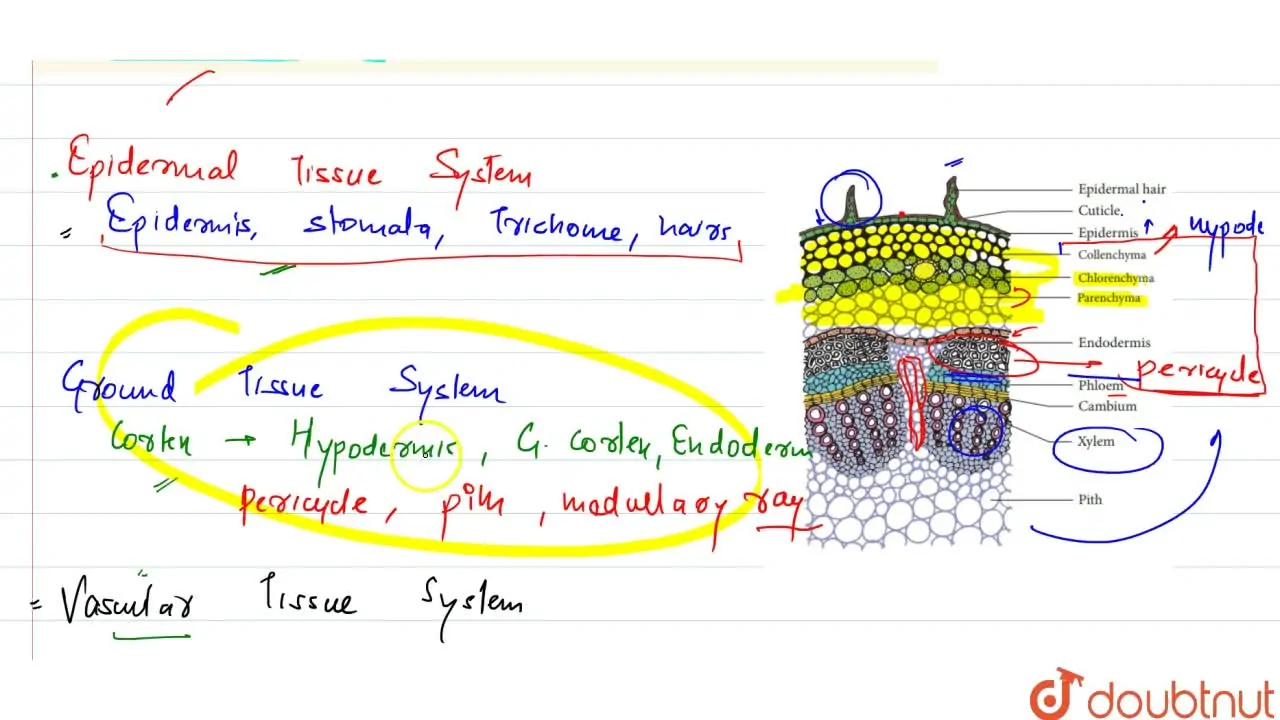 Epidermal Tissue System
= Epidermis, stomata, Trichome, hairs
Ground Tissue System
Cortex → Hypodermis, G. cortex, Endoderm
pericycle, pith, medullary ray
= Vascular Tissue System
Epidermal hair
Cuticle
Epidermis
hypode
Collenchyma
Chlorenchyma
Parenchyma
Endodermis
pericycle
Phloem
Cambium
Xylem
Pith
doubtnut